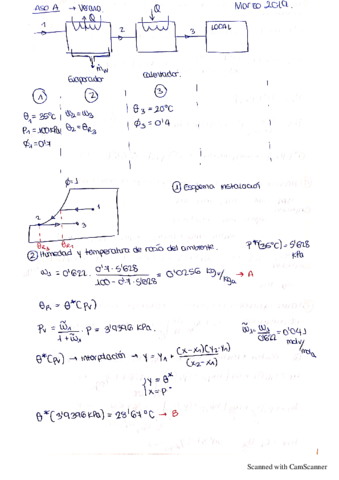 CASO A → Verano
Marzo 2019.
Q
Q
1
2
3
LOCAL
ṁw
Evaporador
calentador.
1
2
3
θ1 = 35°C
P1 = 100 kPa
ϕ1 = 0'7
ω2 = ω3
θ2 = θR3
θ3 = 20°C
ϕ3 = 0'4
ϕ=1
1
2
3
θR3
θR1
① Esquema instalación
② Humedad y temperatura de rocío del ambiente.
P*(35°C) = 5'628 kPa
ω1 = 0'622 · 0'7 · 5'628 / 100 - 0'7 · 5'628 = 0'0256 kgw/kga → A
θR = θ*(Pv)
Pv = ω̃1 / 1 + ω̃1 · P = 3'9396 kPa.
ω̃1 = ω1 / 0'622 = 0'041 molv/mola
θ*(Pv) → interpolación → y = y1 + (x-x1)(y2-y1) / (x2-x1)
{ y = θ*
x = P
θ*(3'9396 kPa) = 28'67°C → B
1
Scanned with CamScanner